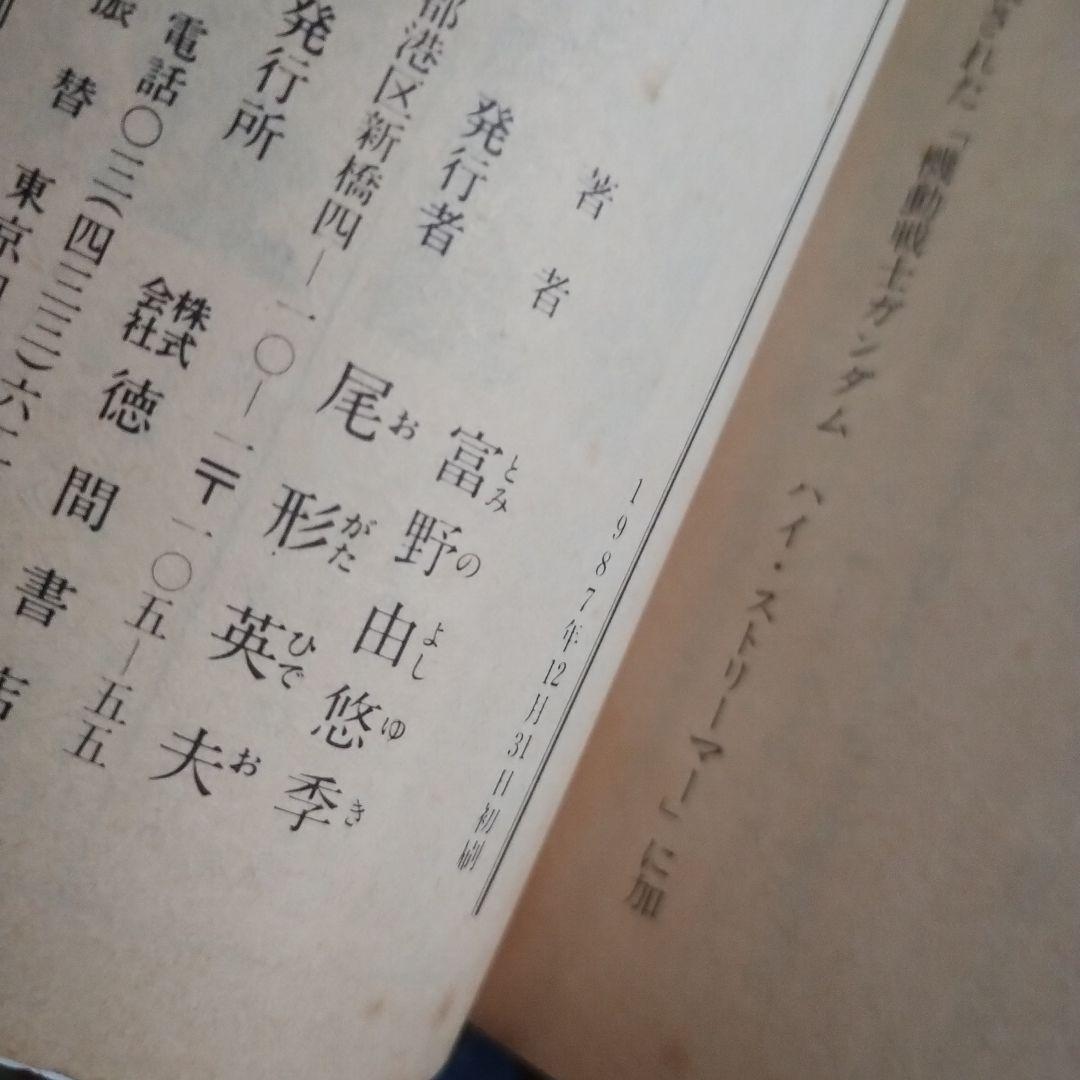 された「機動戦士ガンダム ハイ・ストリーマー」に加
1987年12月31日初刷
著者 富野由悠季
とみ の よし ゆ き
発行者 尾形英夫
お がた ひで お
都港区新橋四―一〇―一〒一〇五―五五
発行所 株式会社徳間書店
電話〇三(四三三)六二
振替 東京四